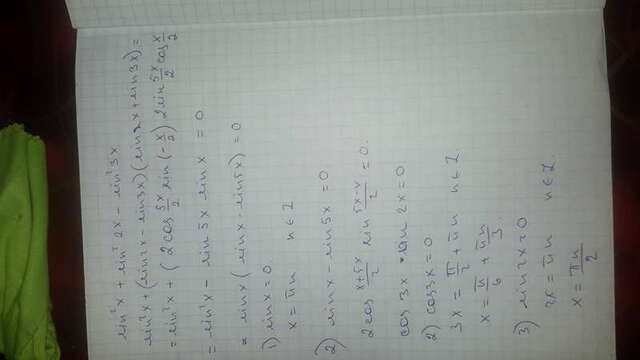 sin²x + sin²2x - sin²3x
sin²x + (sin2x - sin3x)(sin2x + sin3x) =
= sin²x + (2cos 5x/2 sin(-x/2) 2sin 5x/2 cos x/2
= sin²x - sin5x sinx = 0
= sinx (sinx - sin5x) = 0
1) sinx = 0.
x = πn n∈Z
2) sinx - sin5x = 0.
2cos (x+5x)/2 sin (5x-x)/2 = 0.
cos3x · sin2x = 0
2) cos3x = 0
3x = π/2 + πn n∈Z
x = π/6 + πn/3.
3) sin2x = 0
2x = πn n∈Z.
x = πn/2